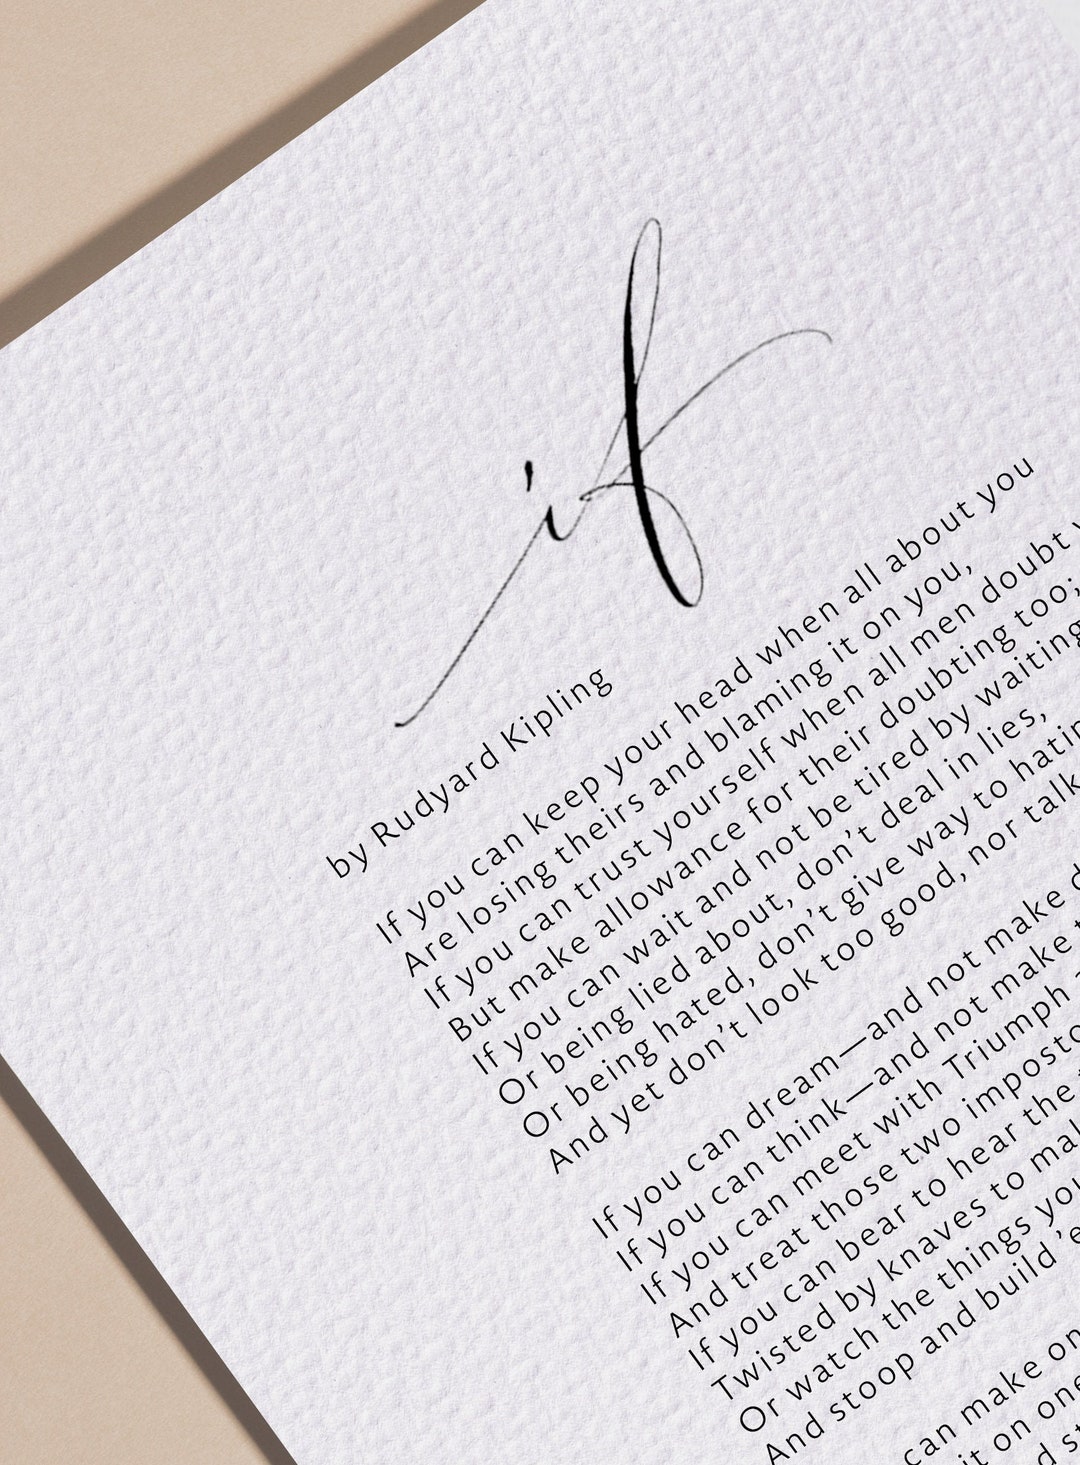 if
by Rudyard Kipling
If you can keep your head when all about you
Are losing theirs and blaming it on you,
If you can trust yourself when all men doubt
But make allowance for their doubting too;
If you can wait and not be tired by waiting
Or being lied about, don't deal in lies,
Or being hated, don't give way to
And yet don't look too good, nor talk
If you can dream—and not make
If you can think—and not make
If you can meet with Triumph
And treat those two
If you can bear to hear the
Twisted by knaves to
Or watch the things
And stoop and build
can make
it on